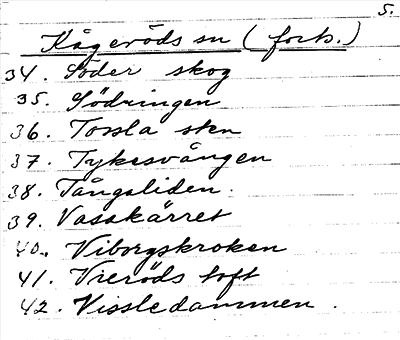 5.
Kågeröds sn (forts.)
34. Söder skog
35. Södringen
36. Torsla sten
37. Tykesvången
38. Tångaliden.
39. Vasakärret
40. Viborgskroken
41. Vreröds toft
42. Vissledammen.